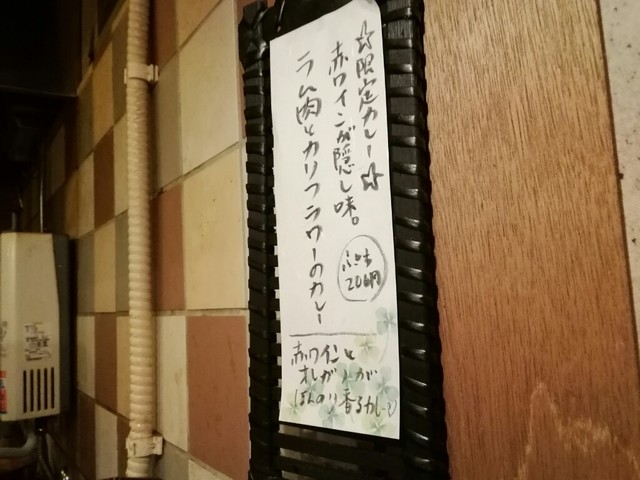 ☆限定カレー☆
赤ワインが隠し味。
ラム肉とカリフラワーのカレー
赤ワインと
オレガノが
ほんのり香るカレー♪